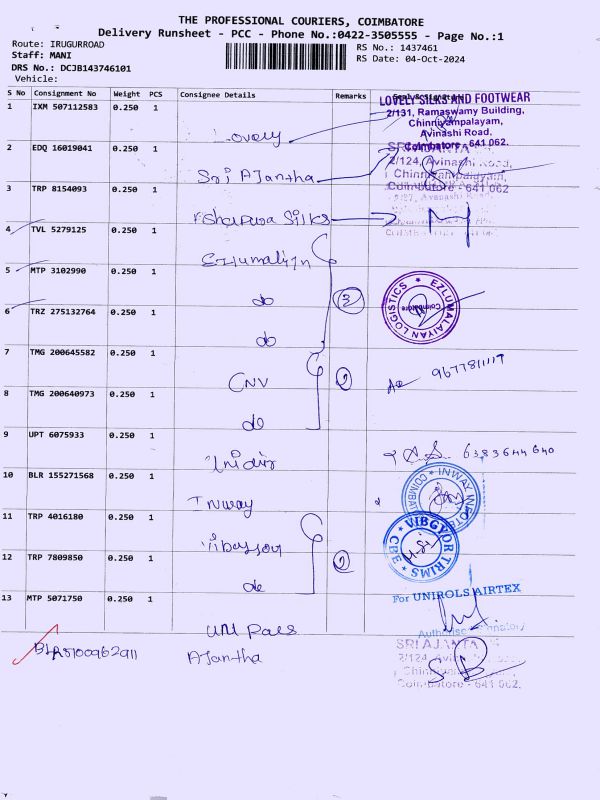 THE PROFESSIONAL COURIERS, COIMBATORE
Delivery Runsheet - PCC - Phone No.:0422-3505555 - Page No.:1
Route: IRUGURROAD
RS No.: 1437461
Staff: MANI
RS Date: 04-Oct-2024
DRS No.: DCJB143746101
Vehicle:
S No Consignment No Weight PCS Consignee Details Remarks Seal & Signature
1 IXM 507112583 0.250 1
Lovely
LOVELY SILKS AND FOOTWEAR
2/131, Ramaswamy Building,
Chinniyampalayam,
Avinashi Road,
Coimbatore - 641 062.
2 EDQ 16019041 0.250 1
Sri Ajantha
SRI AJANTA
2/124, Avinashi Road,
Chinniyampalayam,
Coimbatore - 641 062
3 TRP 8154093 0.250 1
Silks
Avanashi Road,
4 TVL 5279125 0.250 1
Ezhumalian
5 MTP 3102990 0.250 1
do
3
EZLUMALAIYAN LOGISTICS
Coimbatore
6 TRZ 275132764 0.250 1
do
7 TMG 200645582 0.250 1
CNV
2
9677811117
8 TMG 200640973 0.250 1
do
9 UPT 6075933 0.250 1
6383644640
10 BLR 155271568 0.250 1
Inway
INWAY INFOTE
COIMBAT
11 TRP 4016180 0.250 1
Vibgyour
2
VIBGYOR TRIMS
CBE
12 TRP 7809850 0.250 1
do
13 MTP 5071750 0.250 1
For UNIROLS AIRTEX
Authorised Signatory
BLR5100962911
Ajantha
SRI AJANTA
2/124, Avina
Chinniyampala
Coimbatore - 641 062.